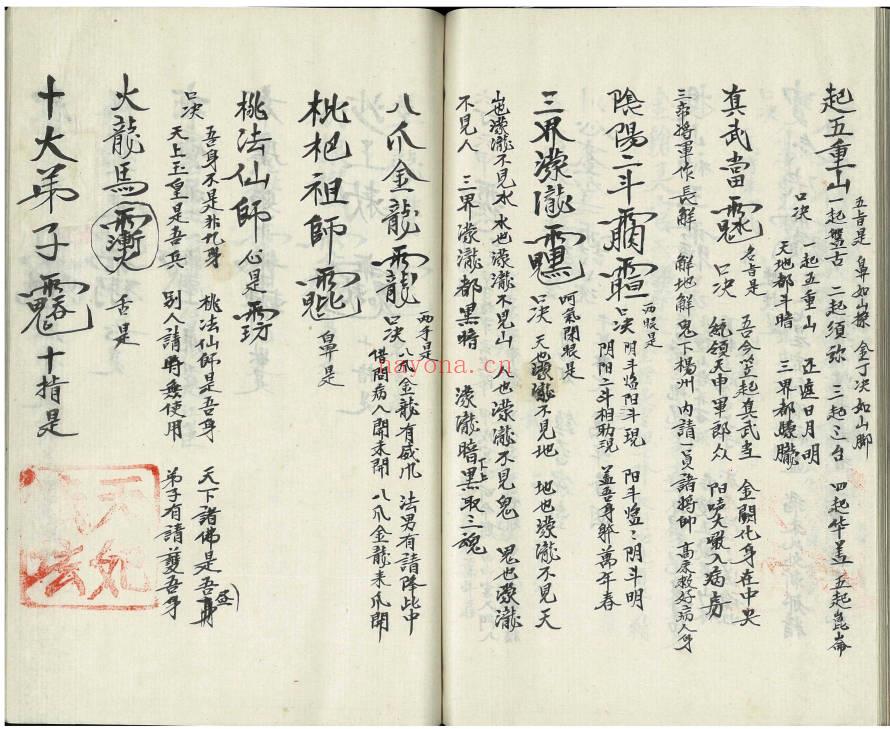 五岳是 鼻如山根 金丁决如山脚
起五重山 一起盤古 二起須弥 三起三台 四起华盖 五起崑崙
口决 一起五重山 正遮日月明
天地都斗暗 三界都朦朧
真武當 口决 名旨是 吾今竖起真武当 金闕化身在中央
統領天中軍郎众 阳声大喂入病房
三部将軍作長觧 觧地觧鬼下楊州 内請一員諸将帅 高床救好病人身
陰陽二斗 口决 两眼是 阴斗焰阳斗現 阳斗焰二阴斗明
阴阳二斗相助現 盖吾身躲萬年春
三界濛瀧 口决 呵氣閉眼是 天也濛瀧不見地 地也濛瀧不見天
山也濛瀧不見水 水也濛瀧不見山 人也濛瀧不見鬼 鬼也濛瀧
不見人 三界濛瀧都黑暗 濛瀧暗黑取三魂
八爪金龍 两手是 口决 八爪金龍有威爪 法男有請降此中
借問病人開未開 八爪金龍来爪開
枇杷祖師 鼻是
桃法仙師 心是
口决 吾身不是非凡身 桃法仙師是吾身 天下諸佛是吾身
天上玉皇是吾兵 别人請時無使用 弟子有請護吾身
火龍馬 舌是
十大弟子 十指是
nayona.cn